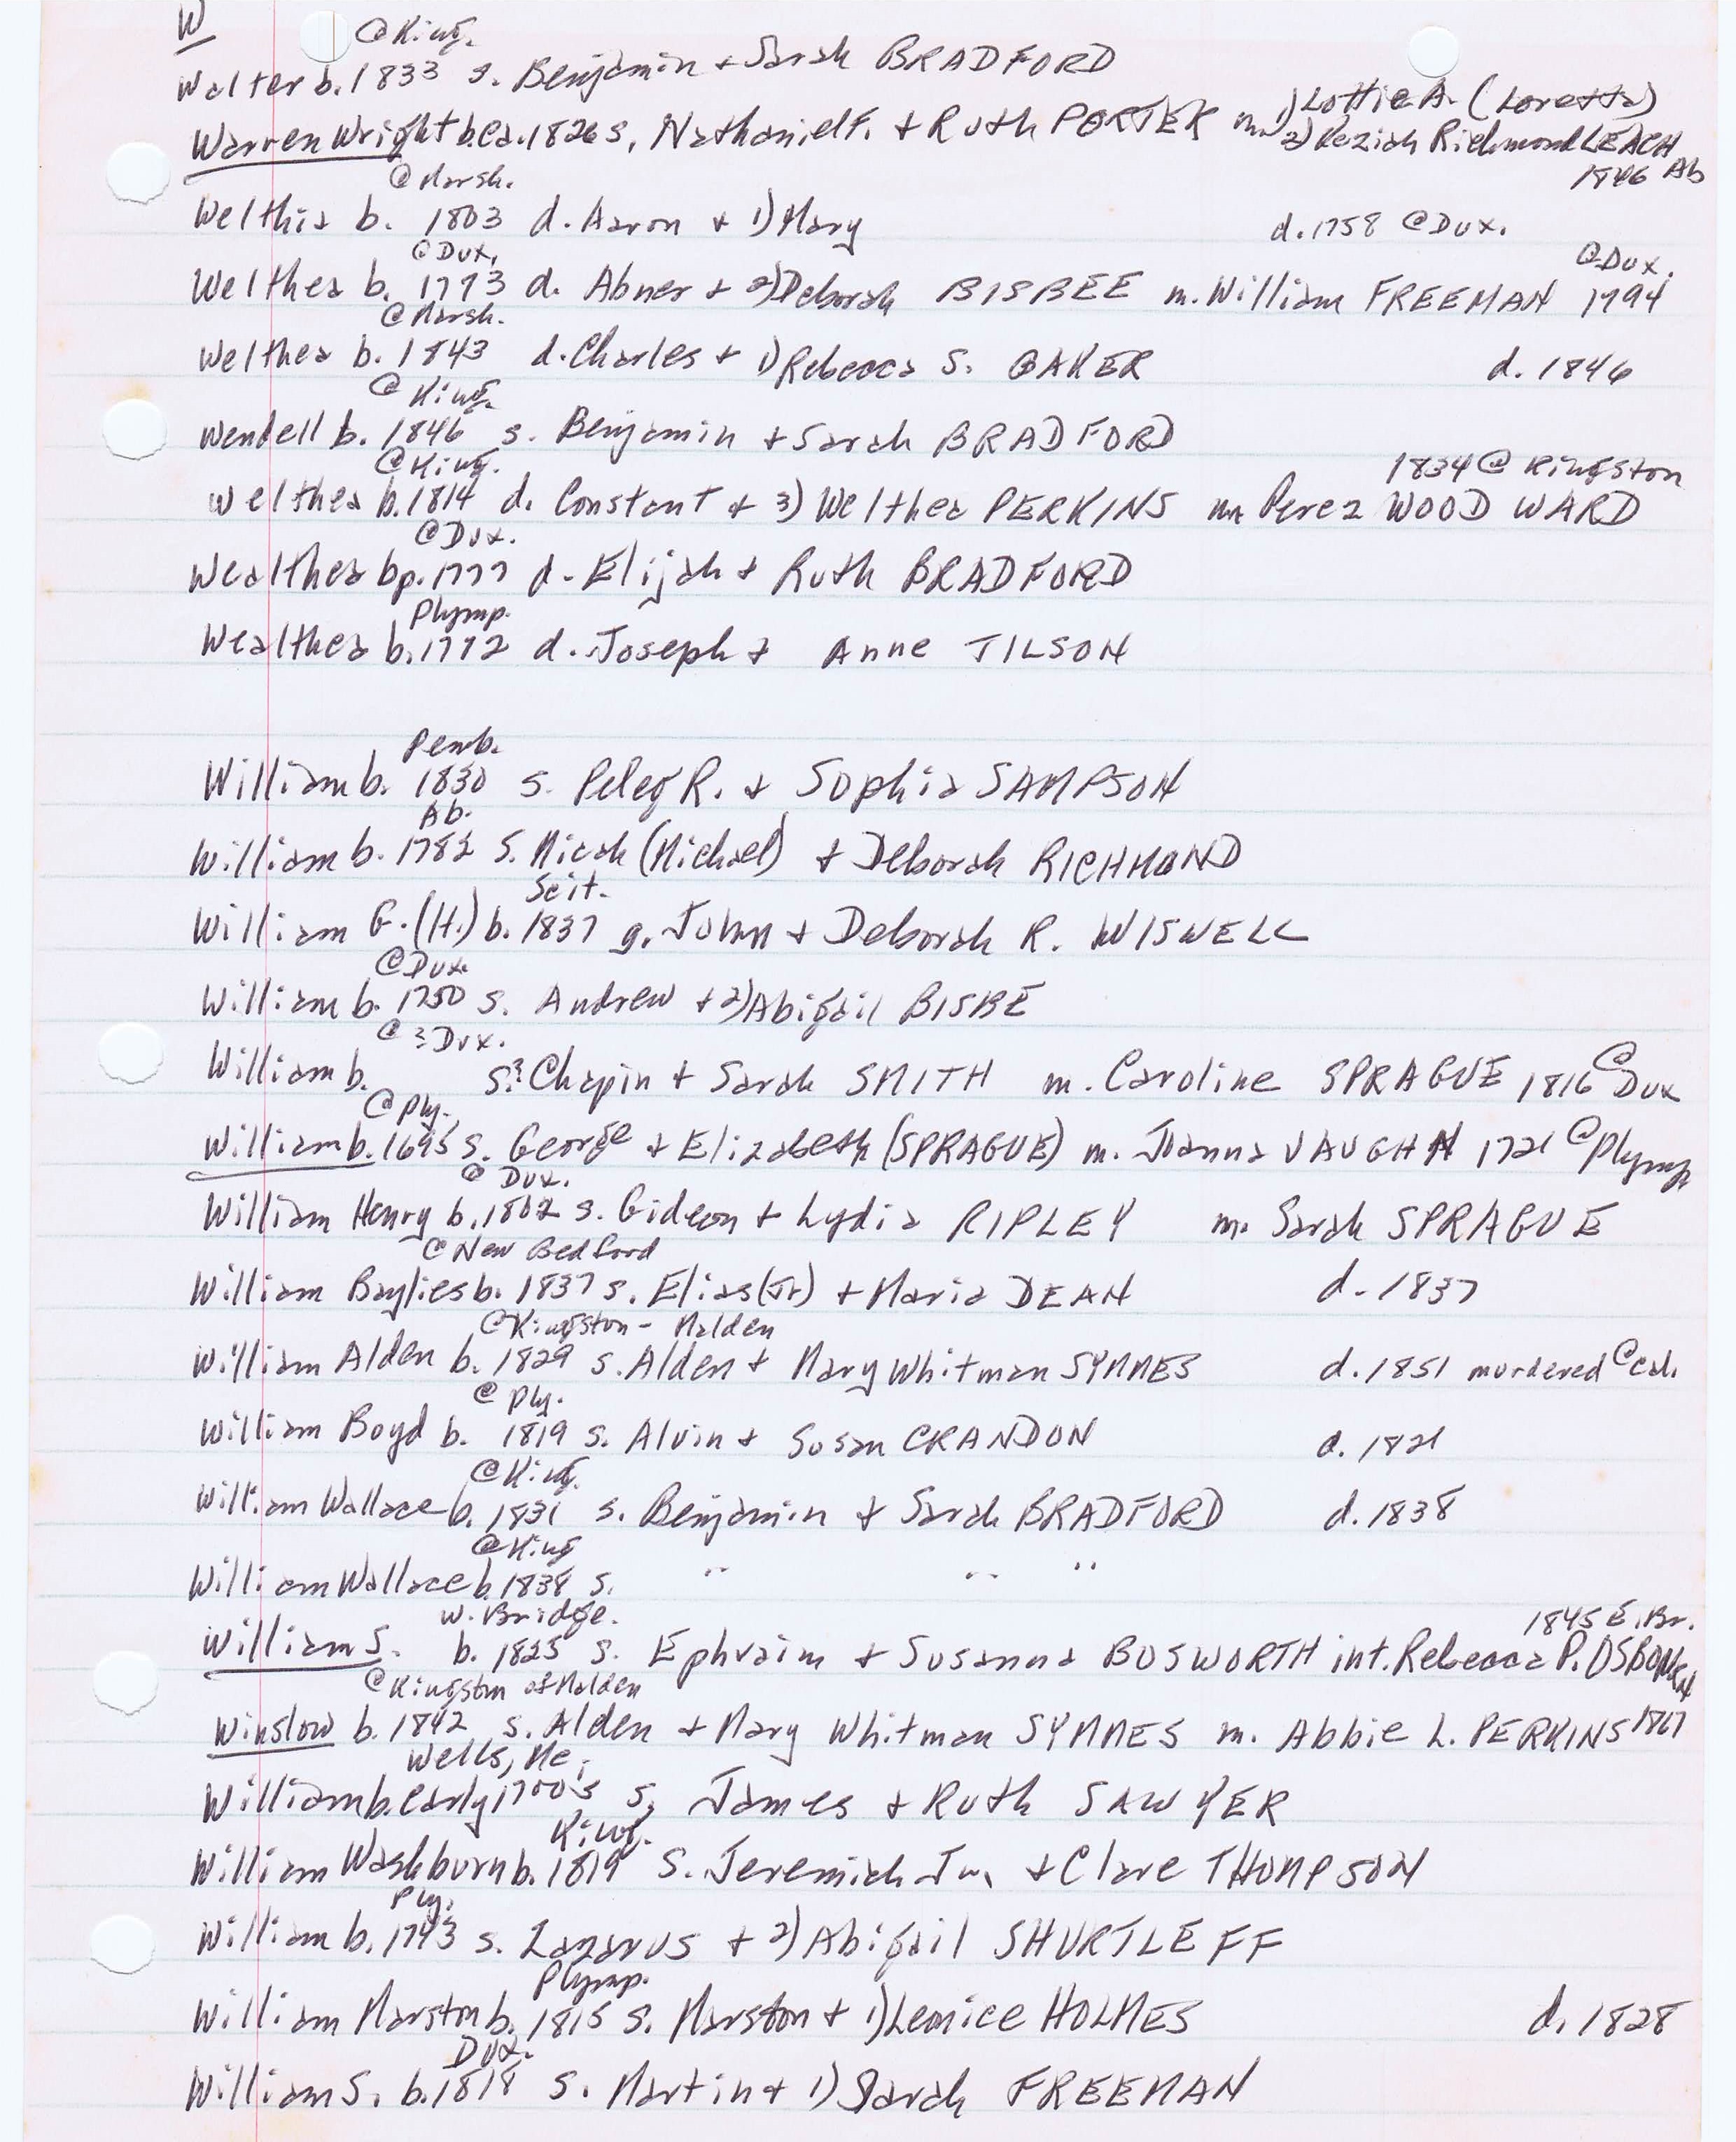 W
@King.
Walter b. 1833 s. Benjamin + Sarah BRADFORD
1) Lottie A. (Loretta)
Warren Wright b. ca. 1826 s. Nathaniel F. + Ruth PORTER m. 2) Keziah Richmond LEACH
@Marsh. 1846 Ab
Welthia b. 1803 d. Aaron + 1) Mary d. 1758 @Dux.
@Dux. @Dux.
Welthea b. 1773 d. Abner + 2) Deborah BISBEE m. William FREEMAN 1794
@Marsh.
Welthea b. 1843 d. Charles + 1) Rebecca S. BAKER d. 1846
@King.
Wendell b. 1846 s. Benjamin + Sarah BRADFORD
@King. 1834 @ Kingston
Welthea b. 1814 d. Constant + 3) Welthea PERKINS m. Perez WOOD WARD
@Dux.
Wealthea bp. 1777 d. Elijah + Ruth BRADFORD
Plymp.
Wealthea b. 1772 d. Joseph + Anne TILSON
Pemb.
William b. 1830 s. Peleg R. + Sophia SAMPSON
Ab.
William b. 1782 s. Micah (Michael) + Deborah RICHMOND
Scit.
William G. (H.) b. 1837 g. John + Deborah R. WISWELL
@Dux.
William b. 1750 s. Andrew + 2) Abigail BISBE
@ ?Dux.
William b. s? Chapin + Sarah SMITH m. Caroline SPRAGUE 1816 @ Dux
@Ply.
William b. 1695 s. George + Elizabeth (SPRAGUE) m. Joanna VAUGHN 1721 @Plymp
@ Dux.
William Henry b. 1802 s. Gideon + Lydia RIPLEY m. Sarah SPRAGUE
@ New Bedford
William Baylies b. 1837 s. Elias (Jr) + Maria DEAN d. 1837
@Kingston - Malden
William Alden b. 1829 s. Alden + Mary Whitman SYMMES d. 1851 murdered @Cal.
@ Ply.
William Boyd b. 1819 s. Alvin + Susan CRANDON d. 1821
@King.
William Wallace b. 1831 s. Benjamin + Sarah BRADFORD d. 1838
@King
William Wallace b. 1838 s. " " "
W. Bridge. 1845 E. Br.
William S. b. 1825 s. Ephraim + Susanna BOSWORTH int. Rebecca P. OSBORN
@Kingston of Malden
Winslow b. 1842 s. Alden + Mary Whitman SYMMES m. Abbie L. PERKINS 1867
Wells, Me.
William b. early 1700's s. James + Ruth SAWYER
King.
William Washburn b. 1819 s. Jeremiah Jr. + Clare THOMPSON
Ply.
William b. 1793 s. Lazarus + 2) Abigail SHURTLEFF
Plymp.
William Marston b. 1815 s. Marston + 1) Leonice HOLMES d. 1828
Dux.
William S. b. 1818 s. Martin + 1) Sarah FREEMAN